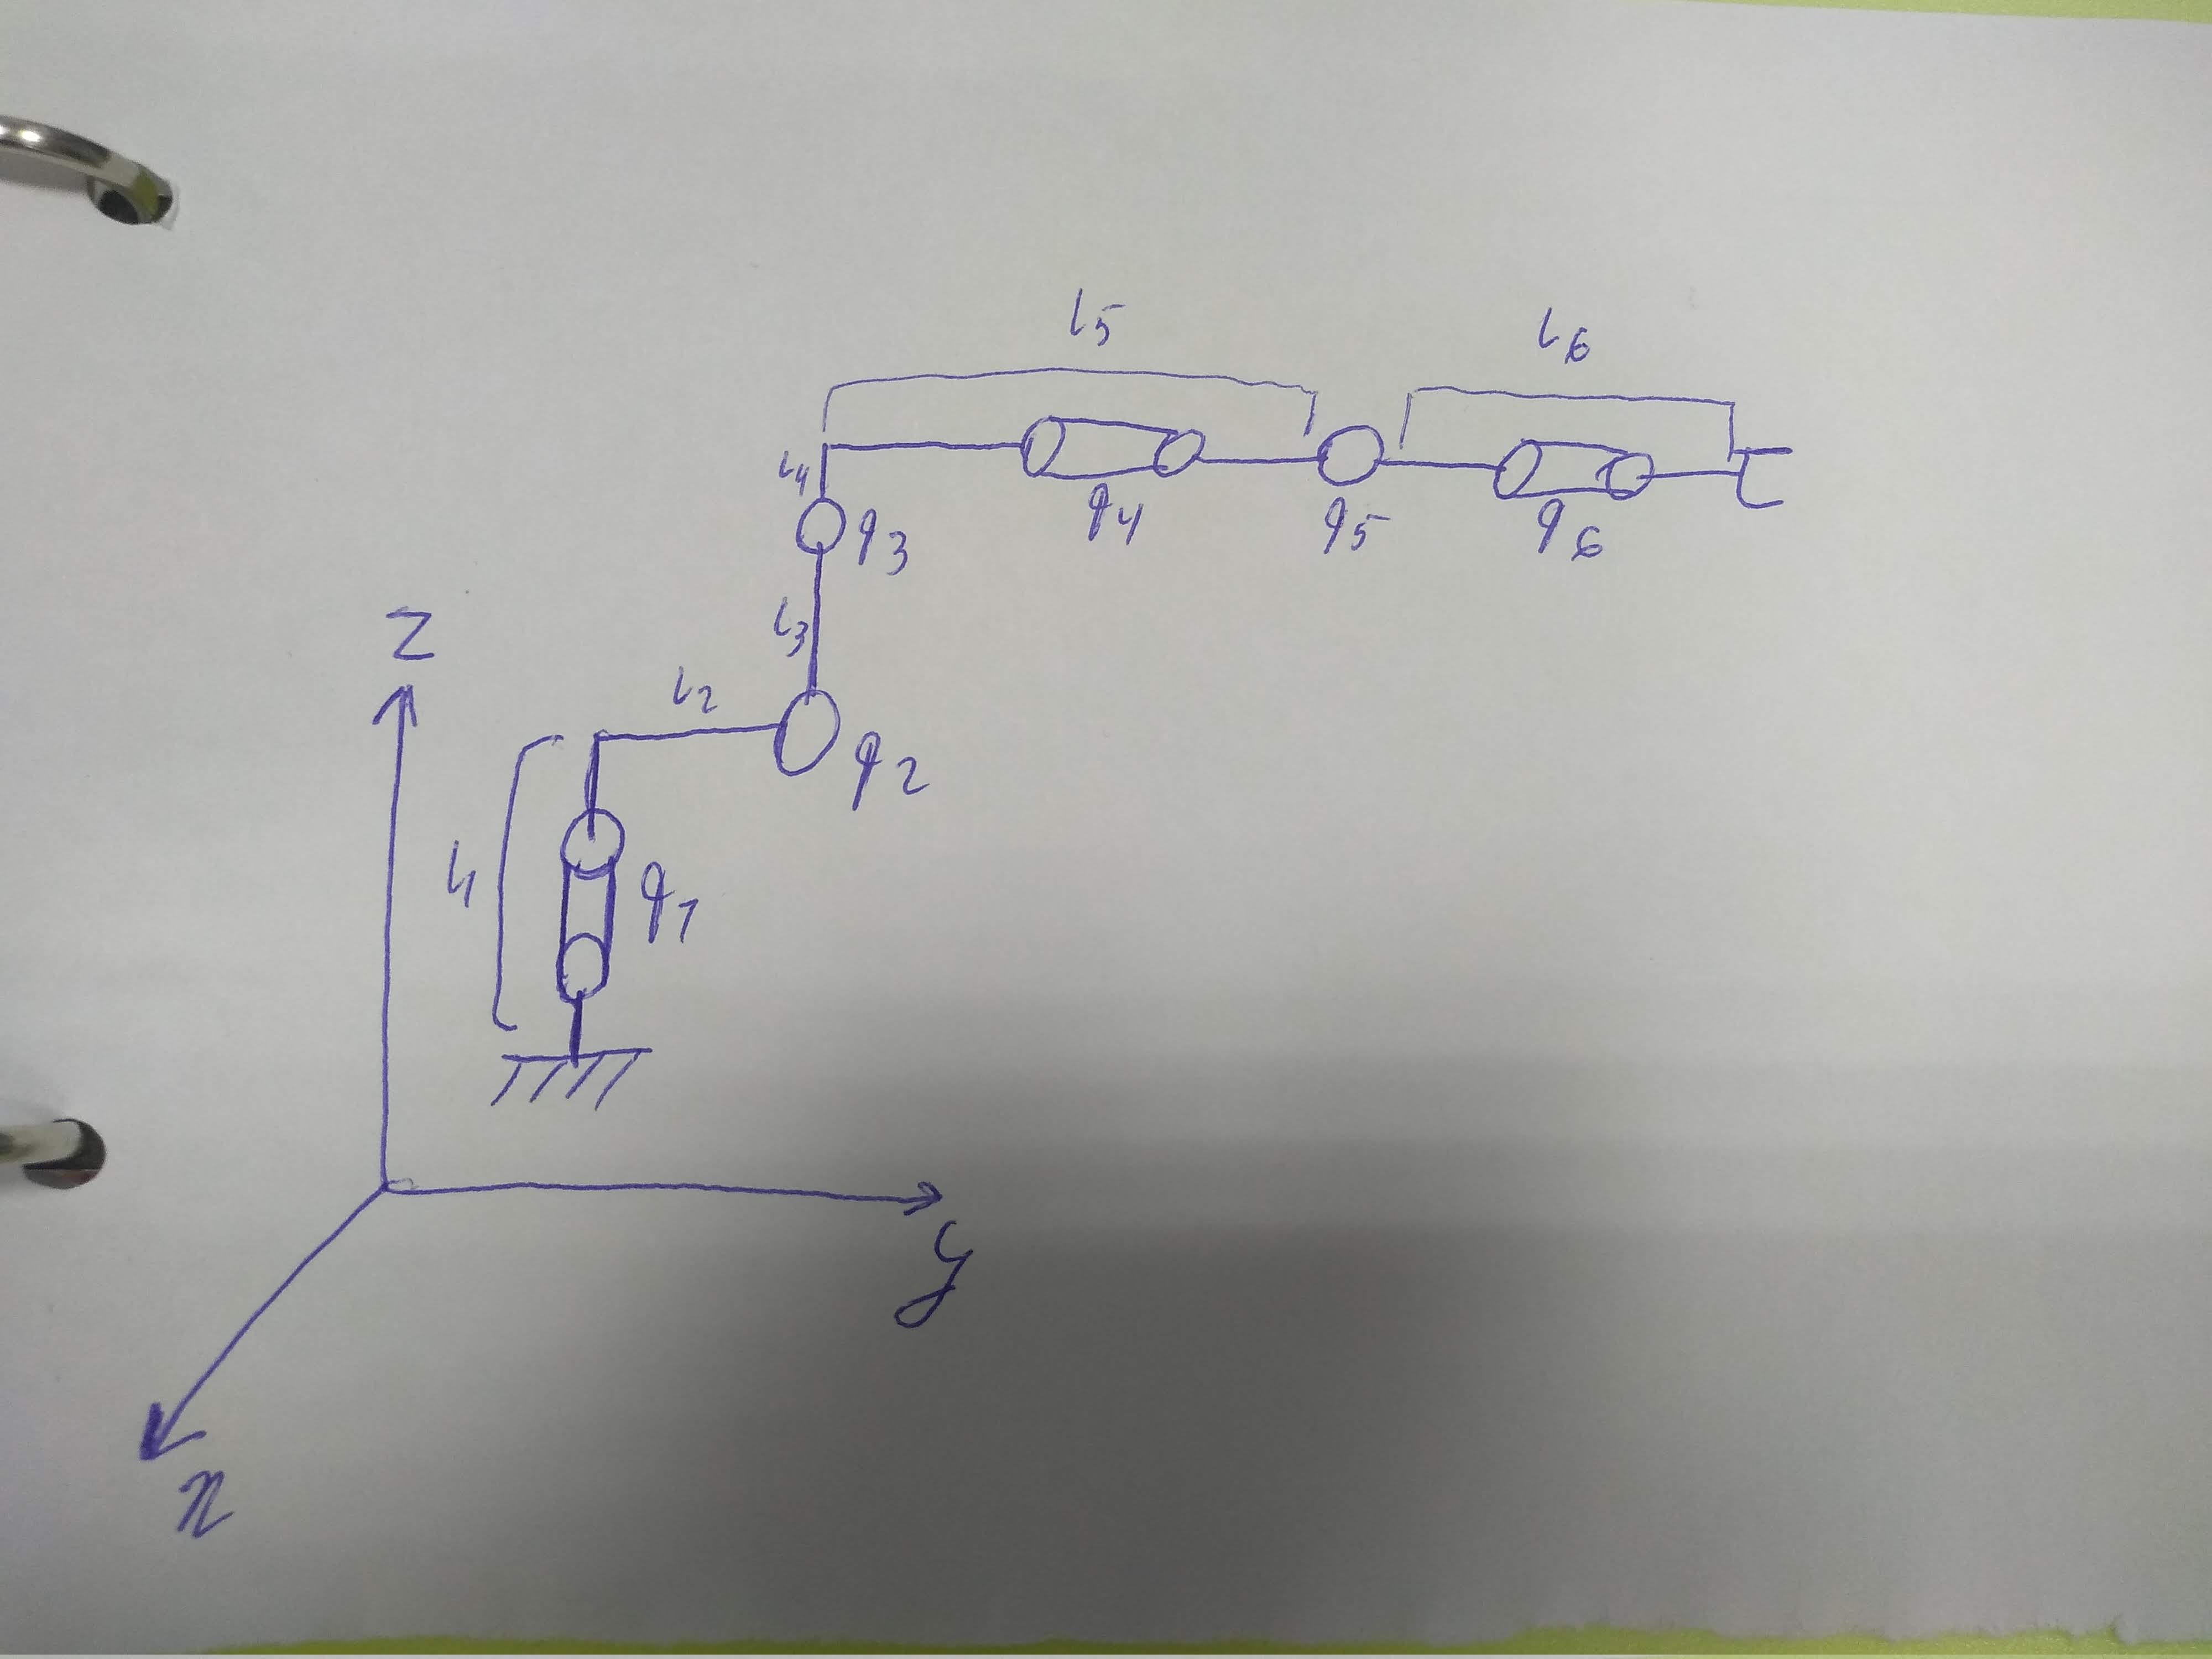 l5
l6
l4
q3
q4
q5
q6
l3
z
l2
q2
l1
q1
y
x